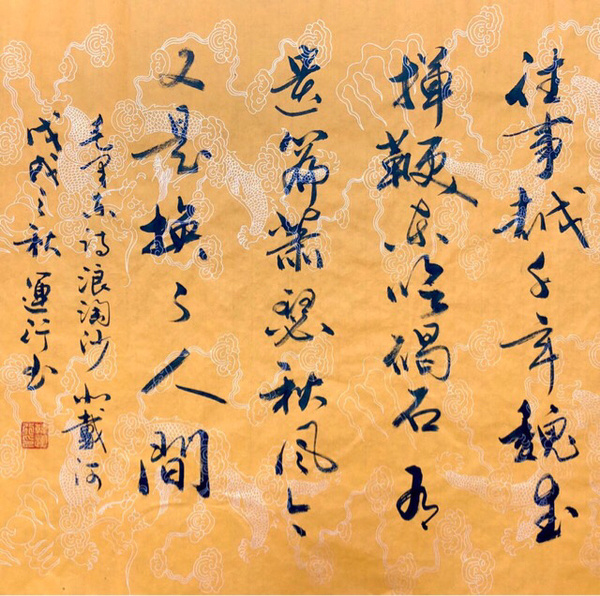 往事越千年魏武
揮鞭东临碣石有
遗篇萧瑟秋风今
又是换了人間
毛泽东诗浪淘沙北戴河
戊戌之秋運行书